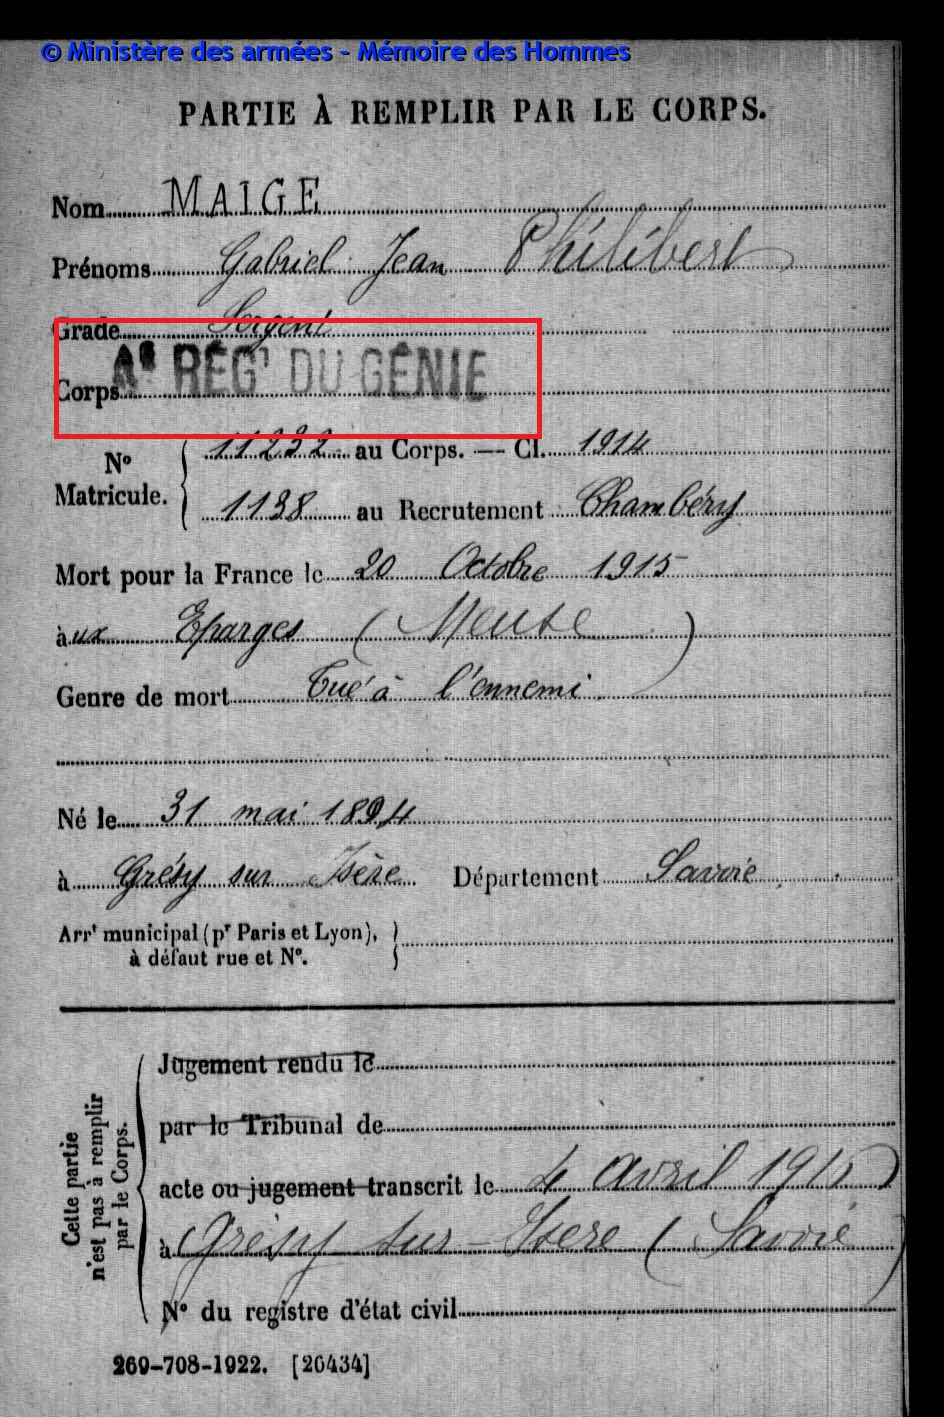 © Ministère des armées - Mémoire des Hommes
PARTIE À REMPLIR PAR LE CORPS.
Nom MAIGE
Prénoms Gabriel Jean Philibert
Grade Sergent
Corps 4e RÉGt DU GÉNIE
No Matricule. 11232 au Corps. — Cl. 1914
1138 au Recrutement Chambéry
Mort pour la France le 20 Octobre 1915
à ux Eparges (Meuse)
Genre de mort Tué à l'ennemi
Né le 31 mai 1894
à Grésy sur Isère Département Savoie
Arrt municipal (pr Paris et Lyon),
à défaut rue et No.
Cette partie
n'est pas à remplir
par le Corps.
Jugement rendu le
par le Tribunal de
acte ou jugement transcrit le 4 avril 1916
à Grésy sur-Isere (Savoie)
No du registre d'état civil
269-708-1922. [26434]